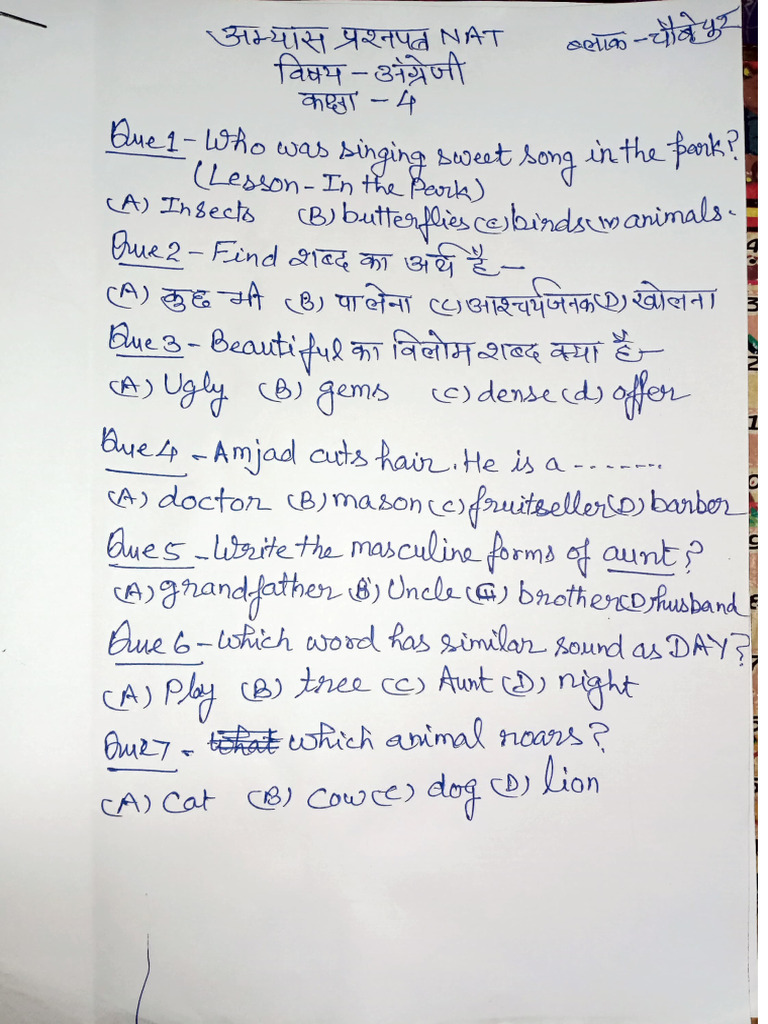 अभ्यास प्रश्नपत्र NAT
ब्लॉक - चौबेपुर
विषय - अंग्रेजी
कक्षा - 4
Que 1 - Who was singing sweet song in the park?
(Lesson - In the Park)
(A) Insects (B) butterflies (C) birds (D) animals.
Que 2 - Find शब्द का अर्थ है -
(A) कुछ भी (B) पा लेना (C) आश्चर्यजनक (D) खोलना
Que 3 - Beautiful का विलोम शब्द क्या है -
(A) Ugly (B) gems (C) dense (d) offer
Que 4 - Amjad cuts hair. He is a -------
(A) doctor (B) mason (C) fruitseller (D) barber
Que 5 - Write the masculine forms of aunt?
(A) grandfather (B) Uncle (C) brother (D) husband
Que 6 - Which word has similar sound as DAY?
(A) Play (B) tree (C) Aunt (D) night
Que 7 - What which animal roars?
(A) Cat (B) Cow (C) dog (D) lion